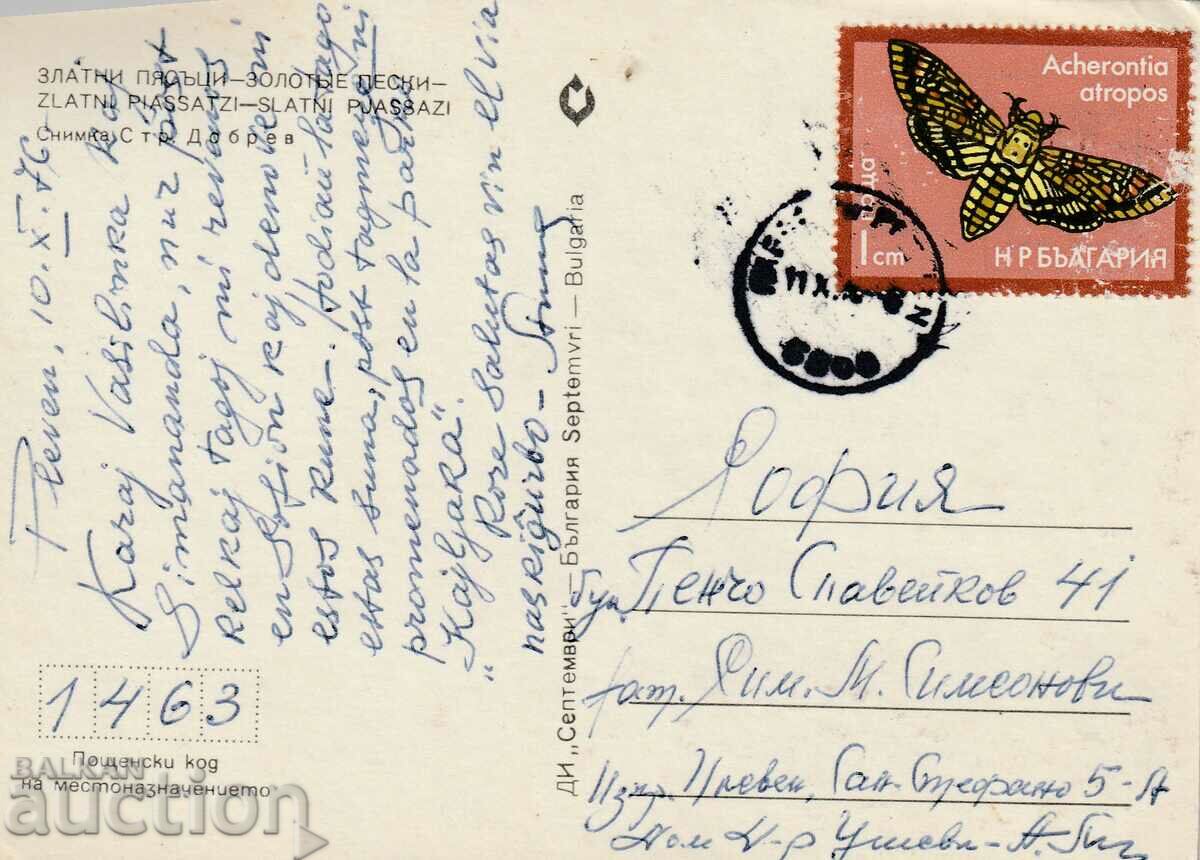 ЗЛАТНИ ПЯСЪЦИ—ЗОЛОТЫЕ ПЕСКИ—
ZLATNI PIASSATZI—SLATNI PJASSAZI
Снимка Стр. Добрев
Pleven, 10.X.76
Karaj Vaslinka kaj
Simananda, nur post
kelkaj tagoj mi revenos
en Sofion kaj denove ni
estos kune. Hodiaŭ la tago
estas suna, post tagmeze ni
promenados en la parko
"Kajljaka".
Kore salutas vin el via
naskiĝurbo—
ДИ „Септември"—България Septemvri—Bulgaria
Acherontia
atropos
поща
1 cm
НР БЪЛГАРИЯ
София
бул. Пенчо Славейков 41
фам. Сим. М. Симеонови
Изпр. Плевен, Сан-Стефано 5-А
Дом Д-р
1463
Пощенски код
на местоназначението
BALKAN
auction